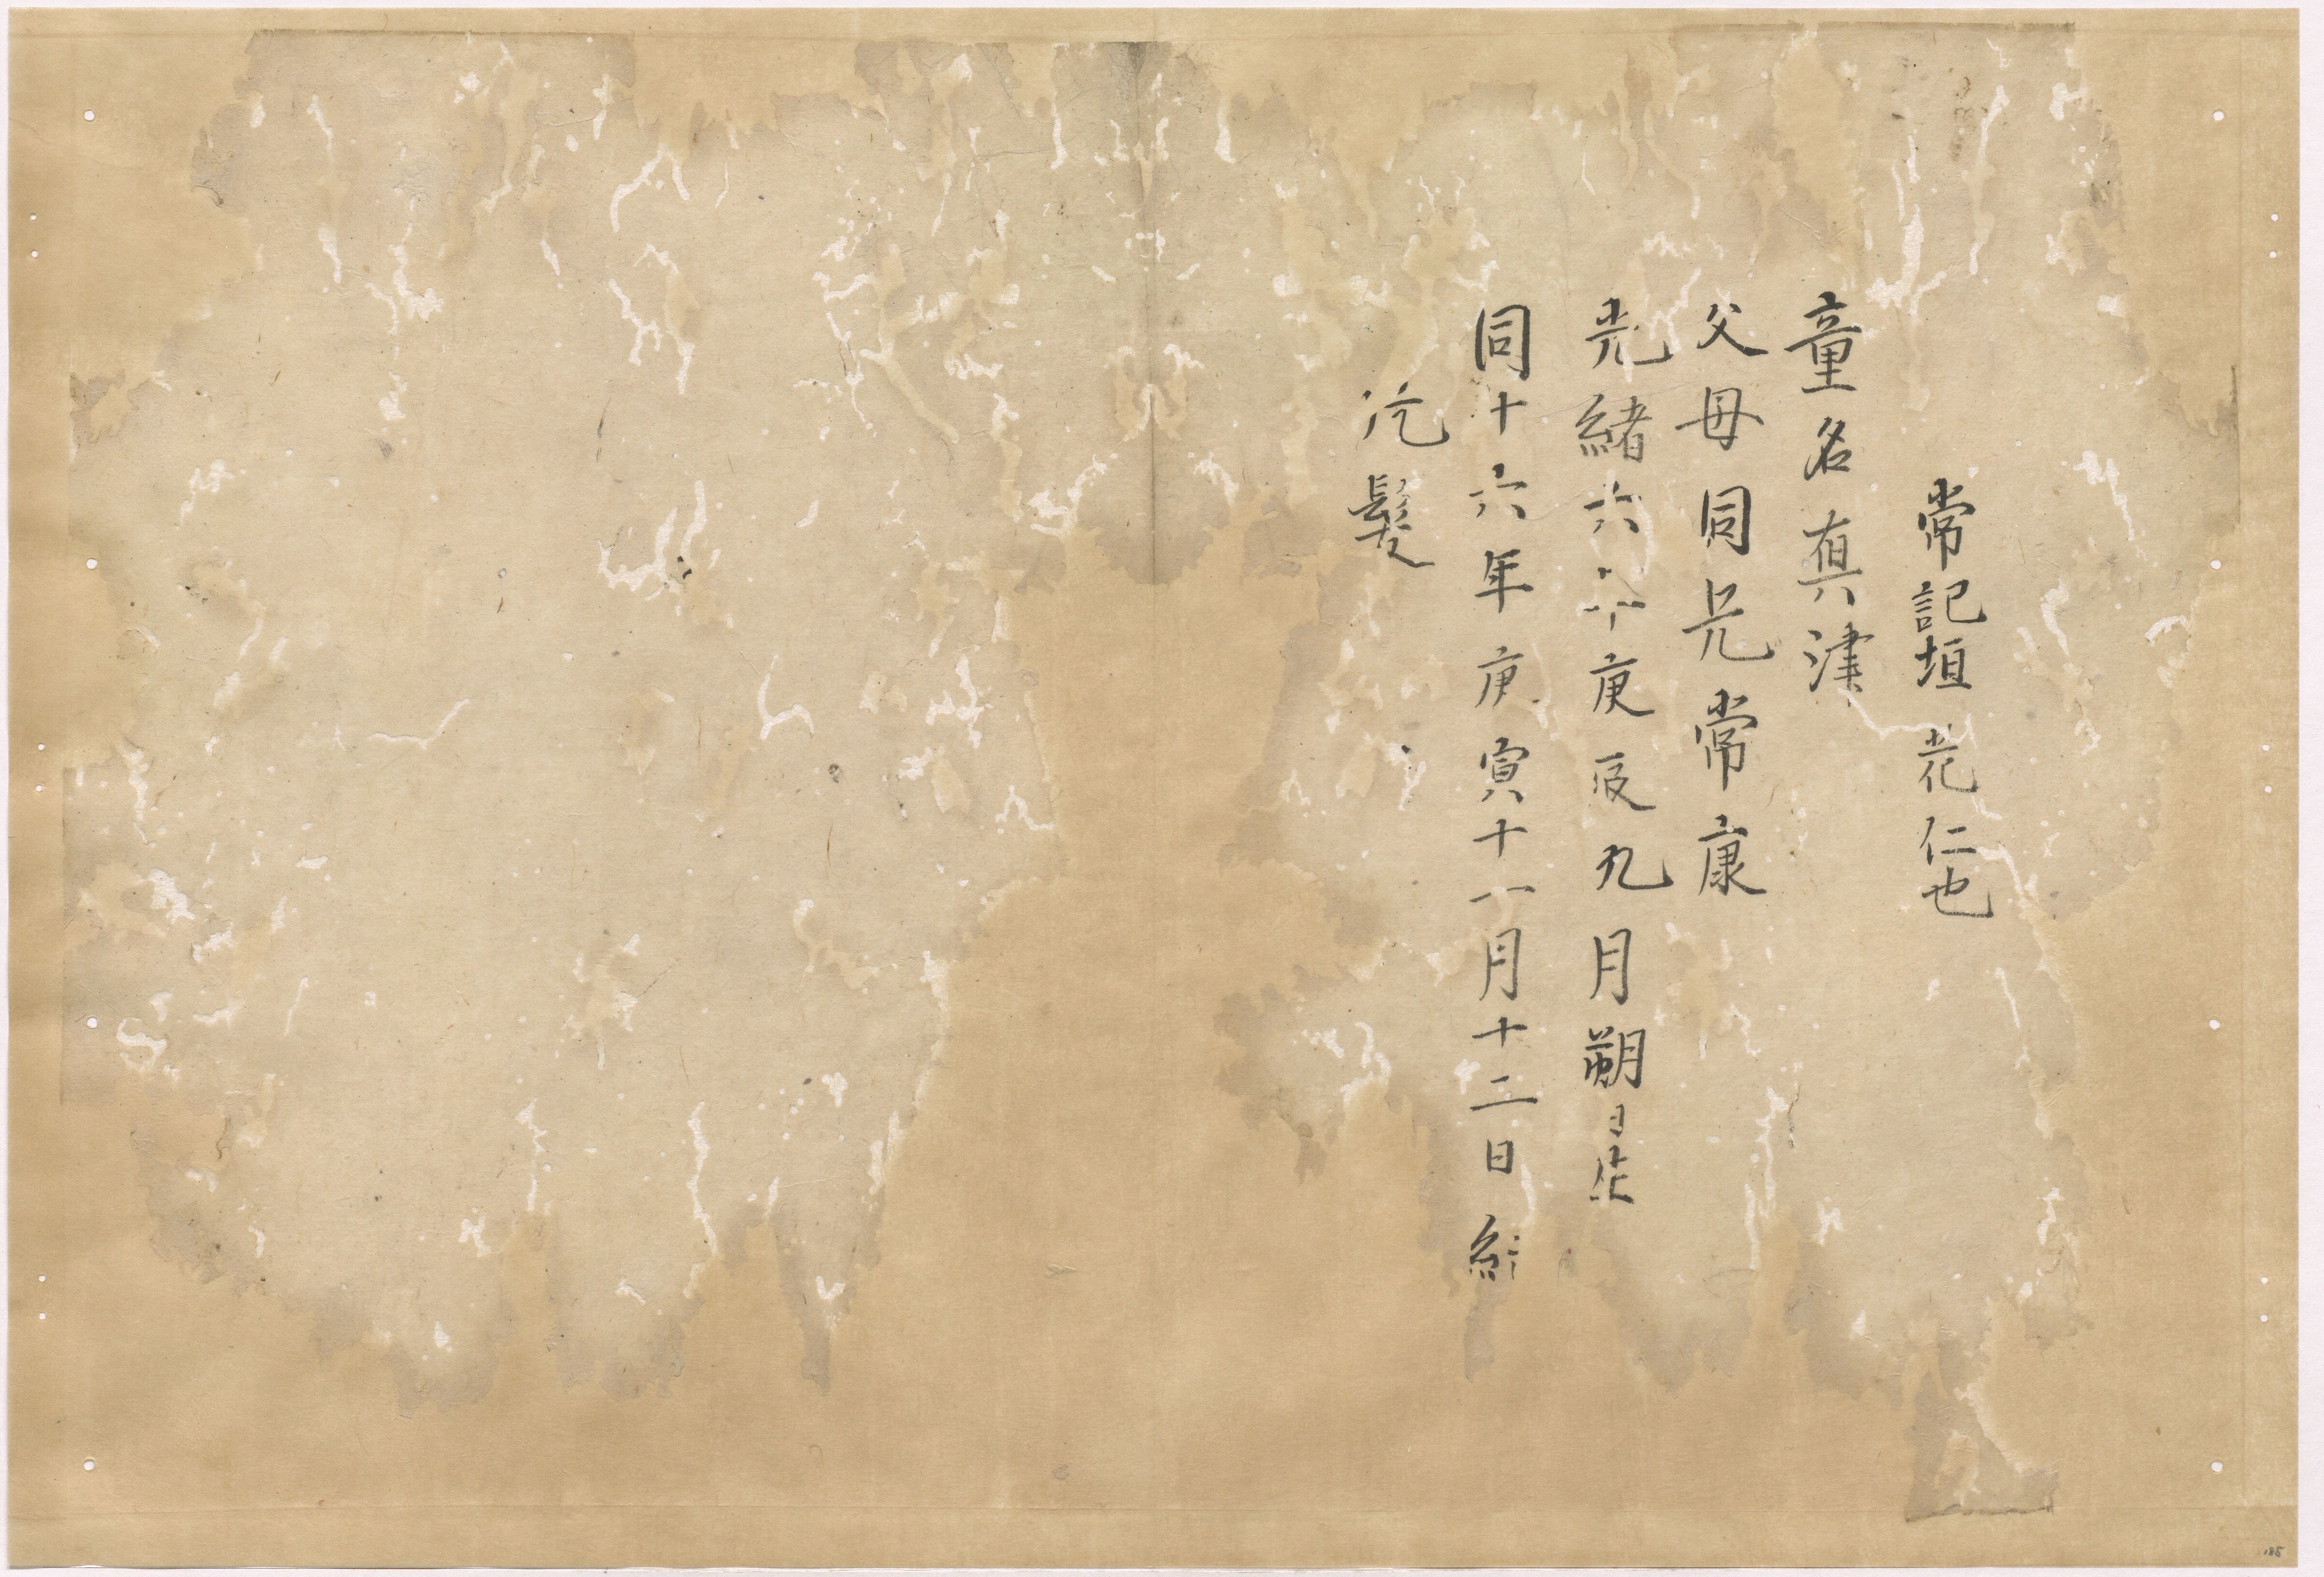 常記垣花仁也
童名真津
父母同兄常康
光緒六年庚辰九月朔日生
同十六年庚寅十一月十二日結
片髪
185